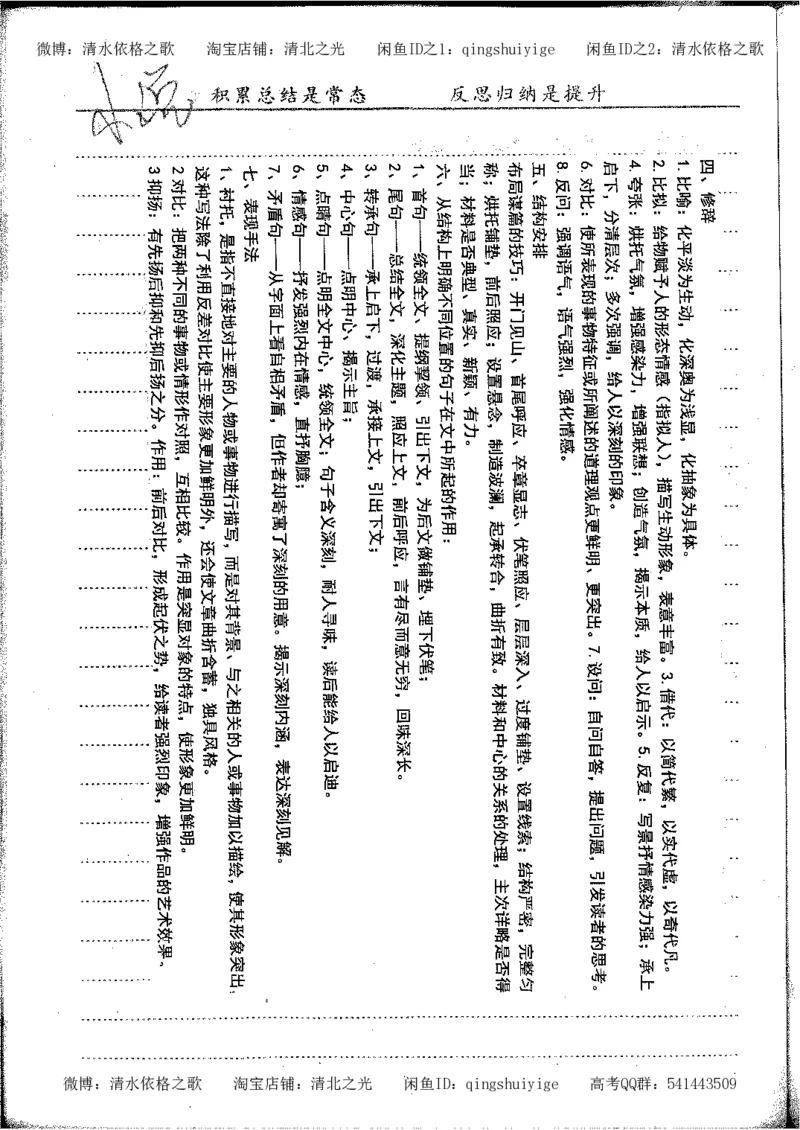 微博：清水依格之歌　淘宝店铺：清北之光　闲鱼ID之1：qingshuiyige　闲鱼ID之2：清水依格之歌
积累总结是常态　反思归纳是提升
四、修辞
1. 比喻：化平淡为生动，化深奥为浅显，化抽象为具体。
2. 比拟：给物赋予人的形态情感（指拟人），描写生动形象，表意丰富。3. 借代：以简代繁，以实代虚，以奇代凡。
4. 夸张：烘托气氛，增强感染力，增强联想；创造气氛，揭示本质，给人以启示。5. 反复：写景抒情感染力强；承上
启下，分清层次；多次强调，给人以深刻的印象。
6. 对比：使所表现的事物特征或所阐述的道理观点更鲜明、更突出。7. 设问：自问自答，提出问题，引发读者的思考。
8. 反问：强调语气，语气强烈，强化情感。
五、结构安排
布局谋篇的技巧：开门见山、首尾呼应、卒章显志、伏笔照应、层层深入、过度铺垫、设置线索；结构严密，完整匀
称；烘托铺垫，前后照应；设置悬念，制造波澜，起承转合，曲折有致。材料和中心的关系的处理，主次详略是否得
当；材料是否典型、真实、新颖、有力。
六、从结构上明确不同位置的句子在文中所起的作用：
1、首句——统领全文、提纲挈领、引出下文，为后文做铺垫、埋下伏笔；
2、尾句——总结全文，深化主题，照应上文，前后呼应，言有尽而意无穷，回味深长。
3、转承句——承上启下，过渡，承接上文，引出下文；
4、中心句——点明中心、揭示主旨；
5、点睛句——点明全文中心，统领全文；句子含义深刻，耐人寻味，读后能给人以启迪。
6、情感句——抒发强烈内在情感，直抒胸臆；
7、矛盾句——从字面上看自相矛盾，但作者却寄寓了深刻的用意。揭示深刻内涵，表达深刻见解。
七、表现手法
1、衬托，是指不直接地对主要的人物或事物进行描写，而是对其背景、与之相关的人或事物加以描绘，使其形象突出，
这种写法除了利用反差对比使主要形象更加鲜明外，还会使文章曲折含蓄，独具风格。
2 对比：把两种不同的事物或情形作对照，互相比较。作用是突显对象的特点，使形象更加鲜明。
3 抑扬：有先扬后抑和先抑后扬之分。作用：前后对比，形成起伏之势，给读者强烈印象，增强作品的艺术效果。
微博：清水依格之歌　淘宝店铺：清北之光　闲鱼ID：qingshuiyige　高考QQ群：541443509